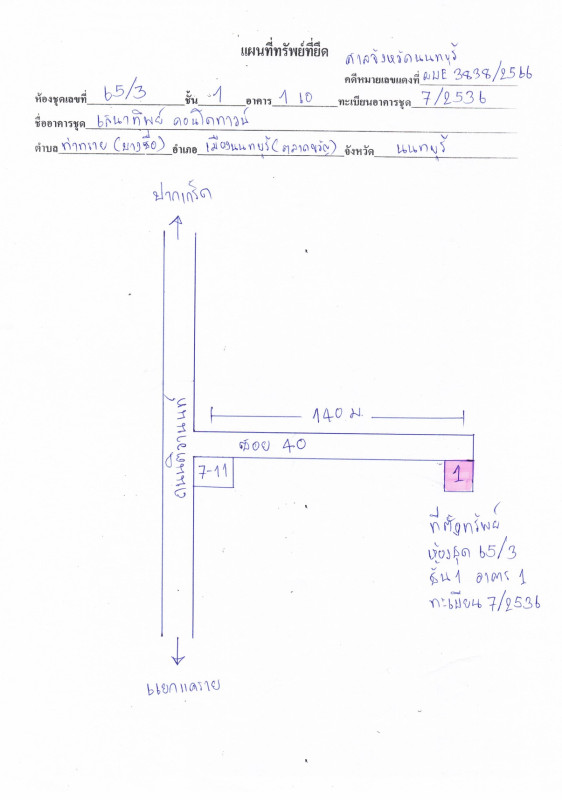 แผนที่ทรัพย์ที่ยึด
ศาลจังหวัดนนทบุรี
คดีหมายเลขแดงที่ ผบE 3838/2566
ห้องชุดเลขที่ 65/3 ชั้น 1 อาคาร 1 ทะเบียนอาคารชุด 7/2536
ชื่ออาคารชุด เสนาทิพย์ คอนโดทาวน์
ตำบล ท่าทราย (บางซื่อ) อำเภอ เมืองนนทบุรี (ตลาดขวัญ) จังหวัด นนทบุรี
ปากเกร็ด
140 ม.
ซอย 40
ถนนติวานนท์
7-11
1
ที่ตั้งทรัพย์
ห้องชุด 65/3
ชั้น 1 อาคาร 1
ทะเบียน 7/2536
แยกแคราย